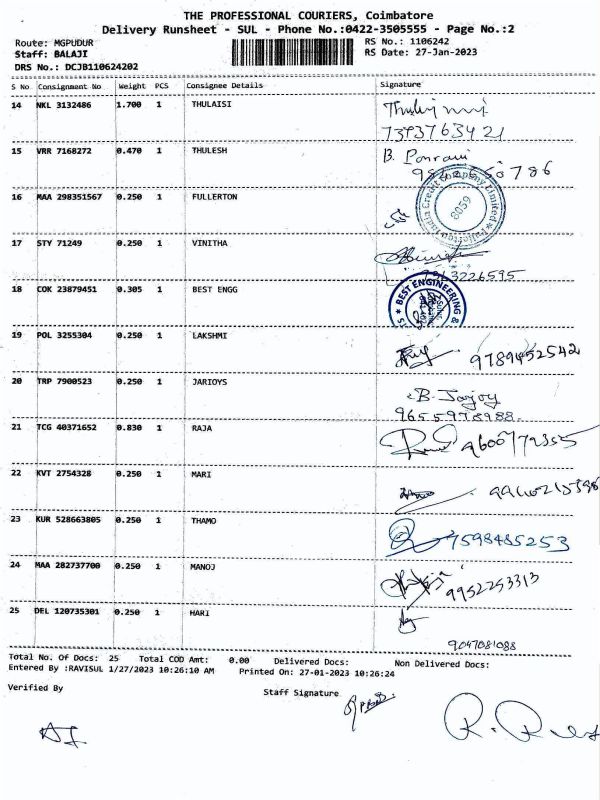 THE PROFESSIONAL COURIERS, Coimbatore
Delivery Runsheet - SUL - Phone No.:0422-3505555 - Page No.:2
Route: MGPUDUR RS No.: 1106242
Staff: BALAJI RS Date: 27-Jan-2023
DRS No.: DCJB110624202
S No Consignment No Weight PCS Consignee Details Signature
14 NKL 3132486 1.700 1 THULAISI
15 VRR 7168272 0.470 1 THULESH
16 MAA 298351567 0.250 1 FULLERTON
Fullerton India Credit Company Limited
8059
17 STY 71249 0.250 1 VINITHA
18 COK 23879451 0.305 1 BEST ENGG
BEST ENGINEERING &
19 POL 3255304 0.250 1 LAKSHMI
9789452542
20 TRP 7900523 0.250 1 JARIOYS
B. Jarjoy
9655978988
21 TCG 40371652 0.830 1 RAJA
22 KVT 2754328 0.250 1 MARI
23 KUR 528663805 0.250 1 THAMO
7598485253
24 MAA 282737700 0.250 1 MANOJ
9952253313
25 DEL 120735301 0.250 1 HARI
9047081088
Total No. Of Docs: 25 Total COD Amt: 0.00 Delivered Docs: Non Delivered Docs:
Entered By :RAVISUL 1/27/2023 10:26:10 AM Printed On: 27-01-2023 10:26:24
Verified By Staff Signature